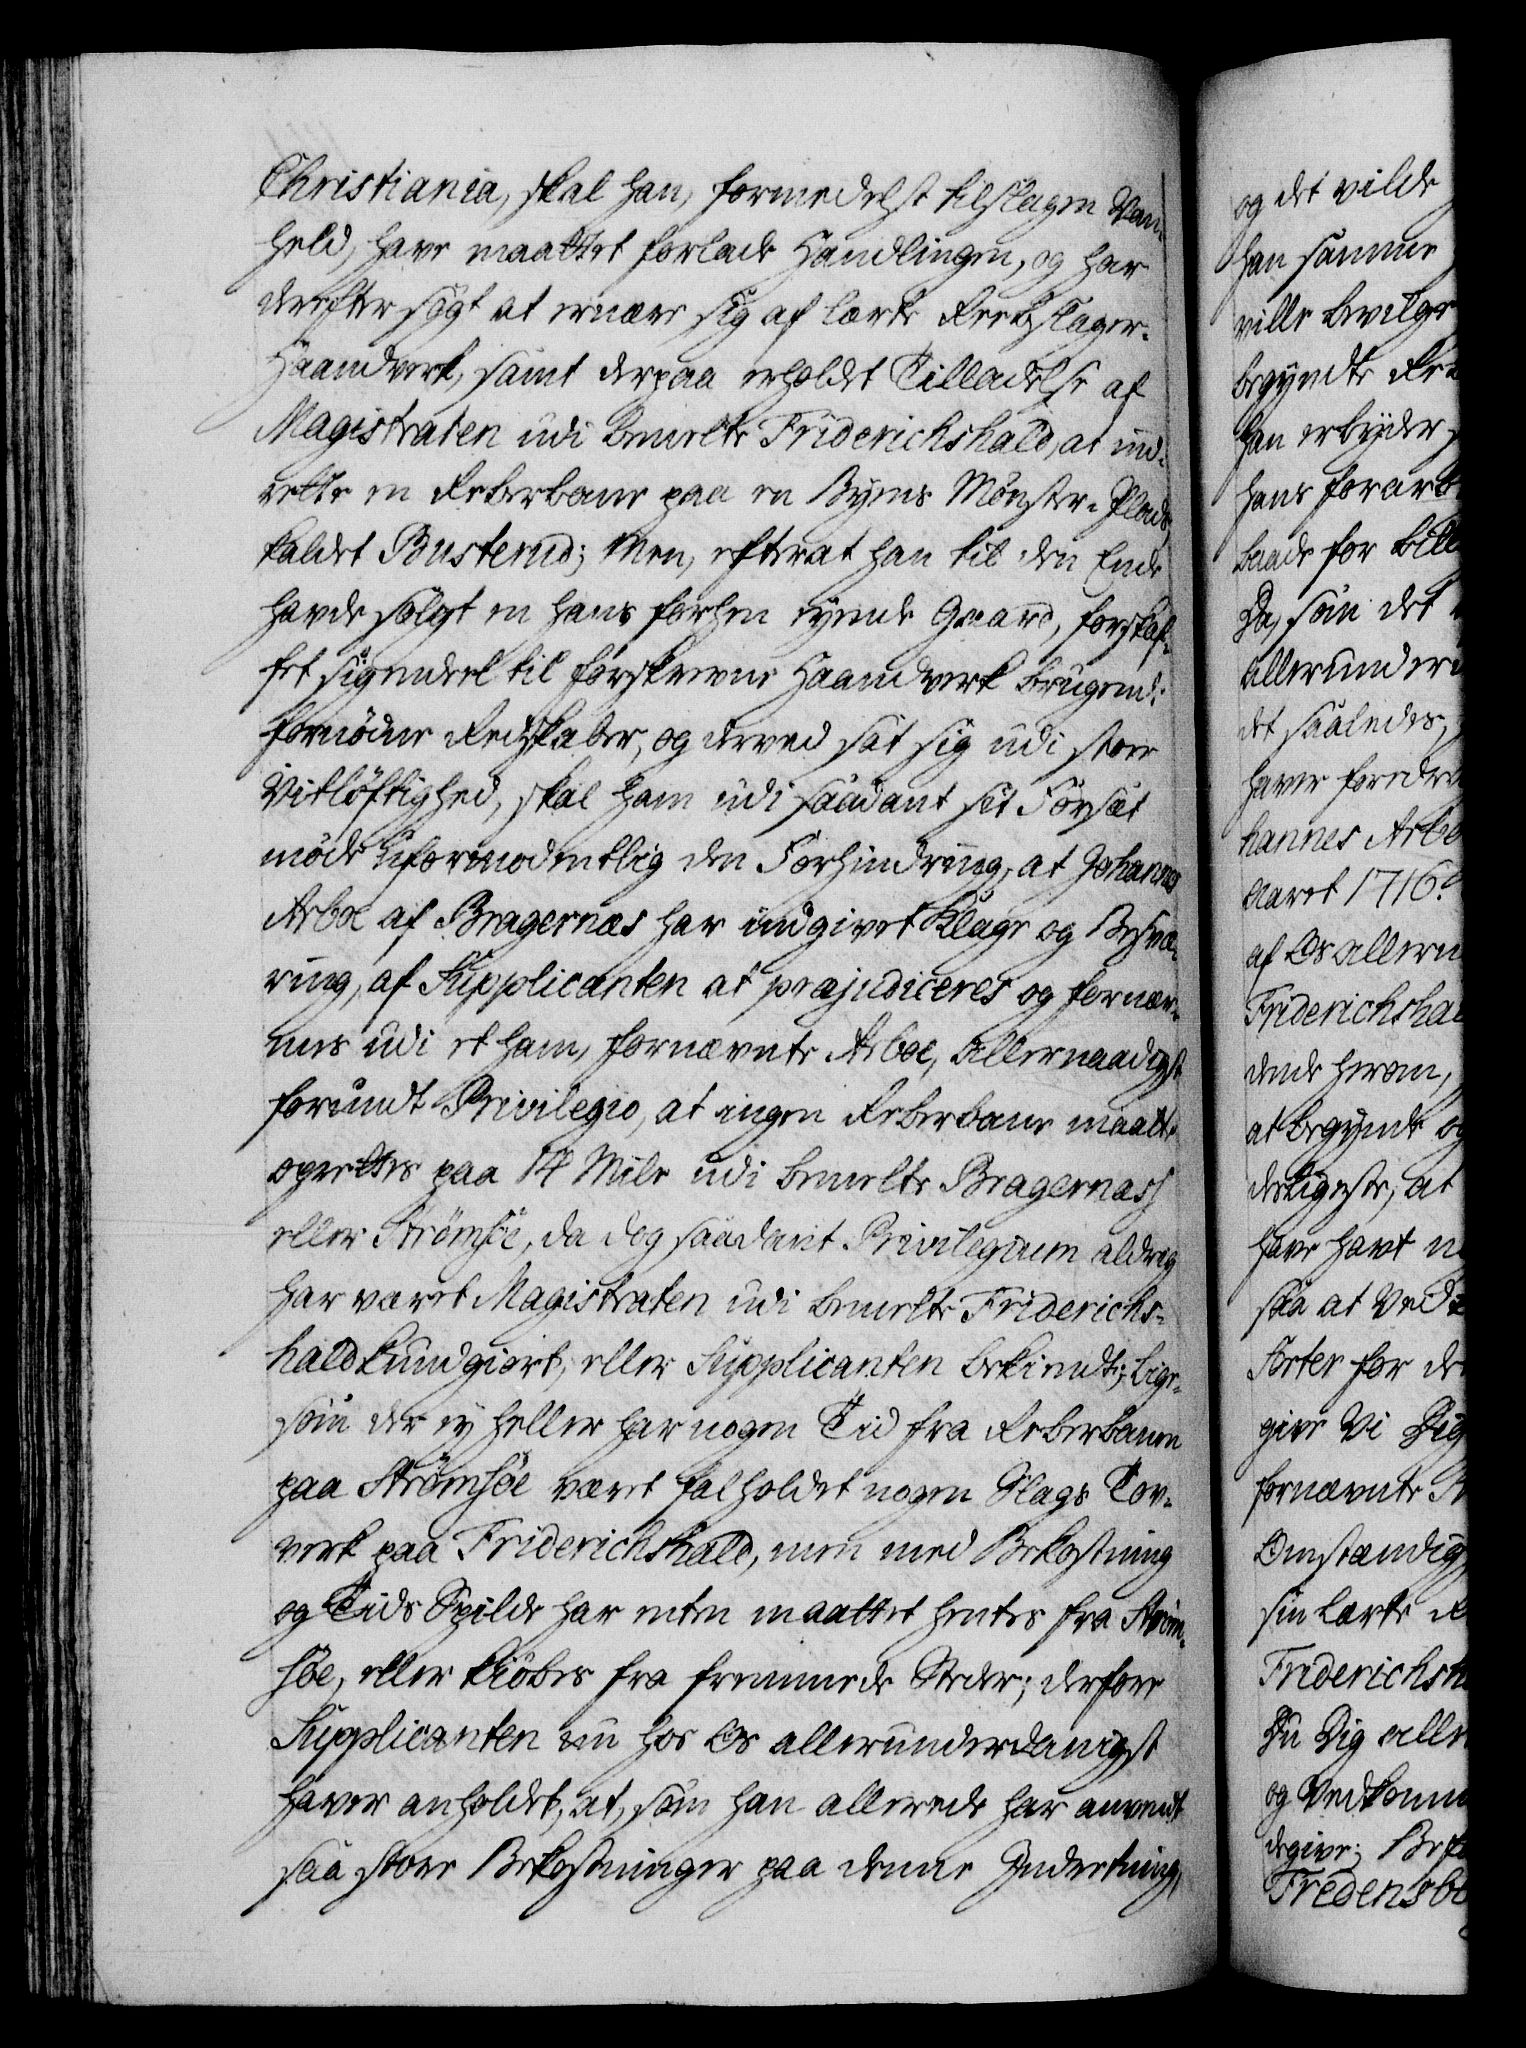 Christiania, skal han, formedelst tilslagen Van-
held, have maattet forlade Handlingen, og har
derefter søgt at ernære sig af lærte Reebslager-
Haandverk, samt derpaa erholdet Tilladelse af
Magistraten udi bemelte Friderichshald, at ind-
rette en Reberbane paa en Byens Mønster-Plads,
kaldet Busterud; Men, efterat han til den Ende
havde solgt en hans forhen eyende Gaard, forskaf-
fet sig endeel til forskrevne Haandverk brugende
fornødne Redskaber, og derved sat sig udi stor
Vitløftighed, skal ham udi saadant sit Forsæt
møde uformodentlig den Forhindring, at Johannes
Arboe af Bragernæs har indgivet Klage og Besvæ-
ring, af Supplicanten at præjudiceres og fornær-
mes udi et ham, fornævnte Arboe, allernaadigst
forundt Privilegio, at ingen Reberbane maatte
oprettes paa 14 Mile udi bemelte Bragernæss
eller Strømsøe, da dog saadant Privilegium aldrig
har været Magistraten udi bemelte Friderichs-
hald kundgiort, eller Supplicanten bekiendt; lige-
som der ey heller har nogen Tid fra Reberbanen
paa Strømsøe været falholdet nogen Slags Tov-
verk paa Friderichshald, men med Bekostning
og Tids Spilde har enten maattet hentes fra Strøm-
søe, eller kiøbes fra fremmede Steder; derfore
Supplicanten nu hos Os allerunderdanigst
haver anholdet, at, som han allerede har anvendt
saa store Bekostninger paa denne Indretning,
og det vilde
han samme
ville bevilge
begyndte Re
han erbyder
hans forarb
baade for bill
Da, som det
allerunder
det saaledes,
haver foredra
hannes Arbo
Aaret 1716
af Os allern
Friderichshal
dende herom,
at begynde og
derligste, at
have havt
saa at ved
Forter for de
give Vi Dig
fornævnte
Omstændig
sin lærte R
Friderichsh
Du Dig alle
og Vedkomm
degive; Bef
Fredensb